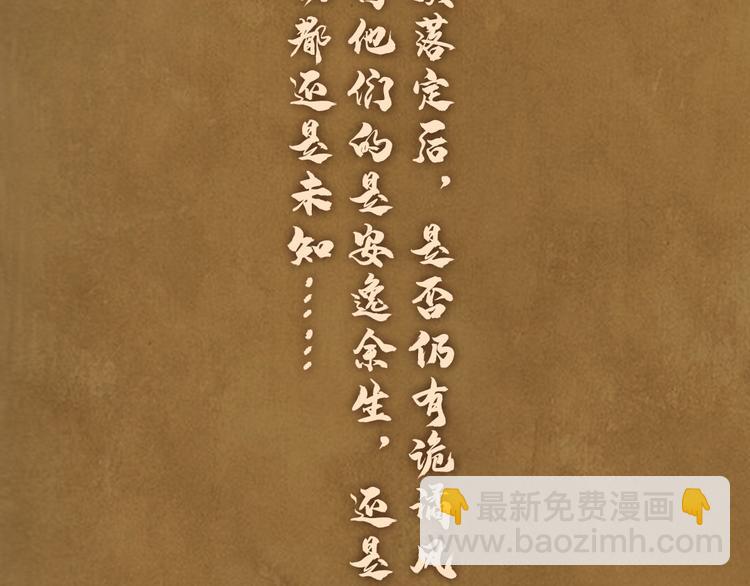 落定后，是否仍有诡谲风
他们的是安逸余生，还是
都还是未知……
最新免费漫画
www.baozimh.com